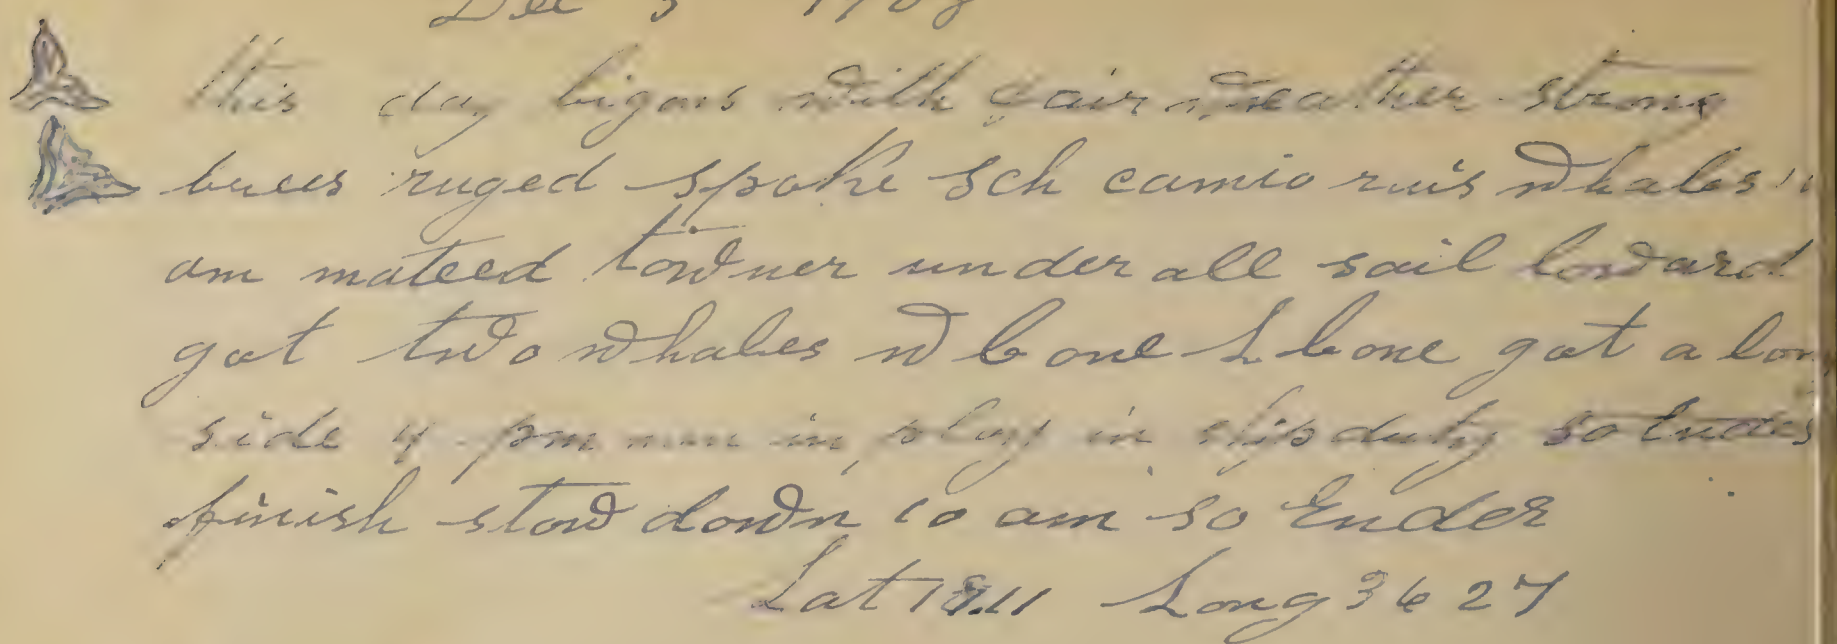 Dec 5 1908
this day bigans with fair weather strong
brees ruged spoke sch cameo rais whales
am mateed towner under all sail loward
got two whales w b one L b one got a long
side 4 pm men in play in ship duty so Endes
finish stow down 10 am so Ender
Lat 18.11 Long 36 27